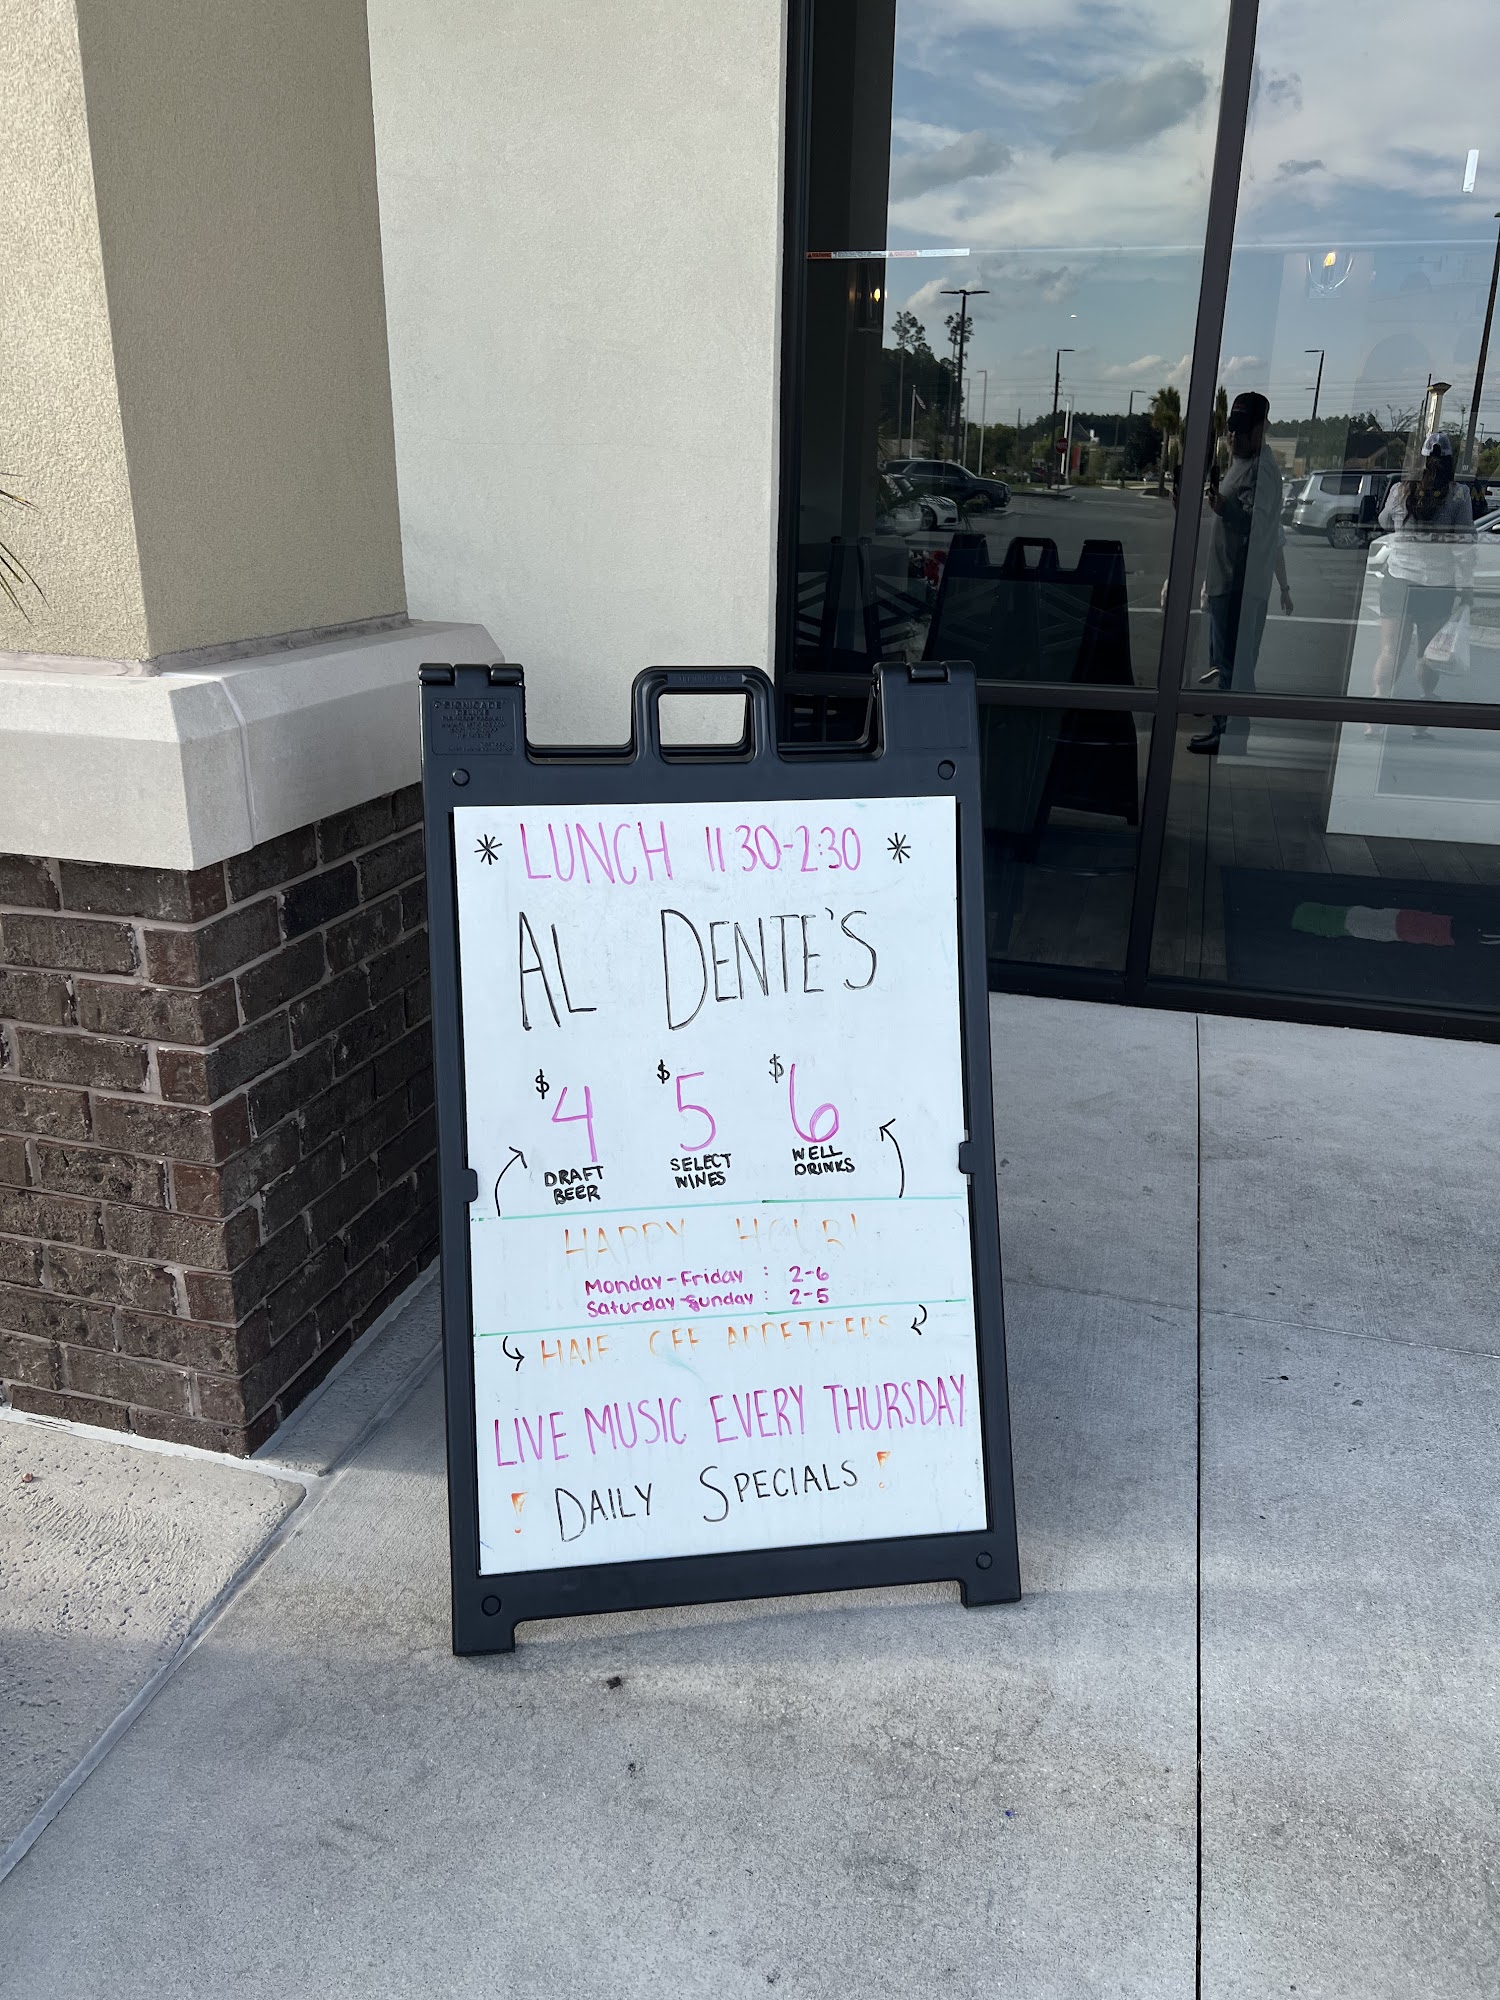 * LUNCH 11:30-2:30 *
AL DENTE'S
$4 $5 $6
DRAFT BEER SELECT WINES WELL DRINKS
HAPPY HOUR!
Monday-Friday : 2-6
Saturday-Sunday : 2-5
HALF OFF APPETIZERS
LIVE MUSIC EVERY THURSDAY
! DAILY SPECIALS !
SIGNICADE
DELUXE